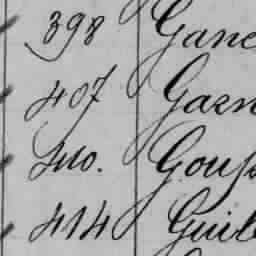 398 Gane
407 Gasn
410. Goup
414 Guil